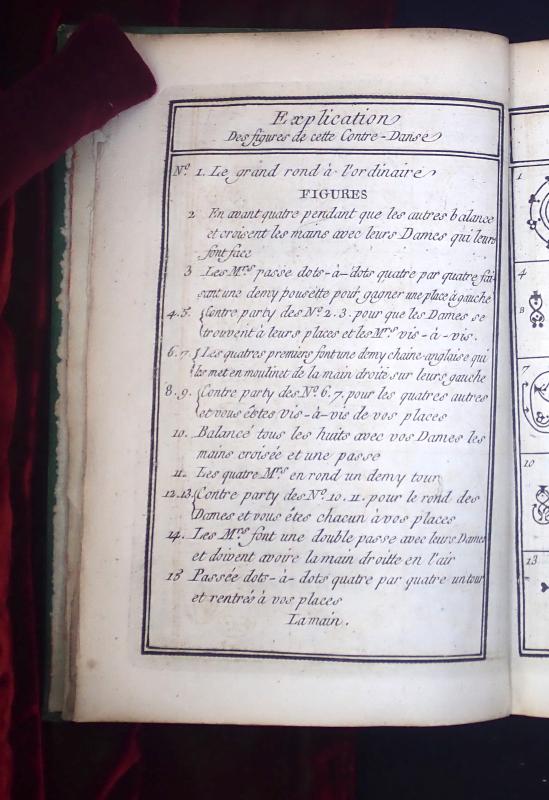 Explication
Des figures de cette Contre-Danse
Nº. 1. Le grand rond à l'ordinaire
FIGURES
2 En avant quatre pendant que les autres balance
et croisent les mains avec leurs Dames qui leurs
font face
3 Les Mrs passe dots-à-dots quatre par quatre fai-
sant une demy pousette pour gagner une place à gauche
4.5. { Contre party des Nº. 2. 3. pour que les Dames se
trouvent à leurs places et les Mrs vis-à-vis.
6.7. { Les quatres premiers font une demy chaine anglaise qui
les met en moulinet de la main droite sur leurs gauche
8.9. { Contre party des Nº. 6. 7. pour les quatres autres
et vous êtes vis-à-vis de vos places
10. Balancé tous les huits avec vos Dames les
mains croisée et une passe
11. Les quatre Mrs en rond un demy tour
12.13. { Contre party des Nº. 10. 11. pour le rond des
Dames et vous êtes chacun à vos places
14. Les Mrs font une double passe avec leurs Dames
et doivent avoire la main droitte en l'air
15 Passée dots-à-dots quatre par quatre un tour
et rentrés à vos places
La main.
1
4
3
7
10
13